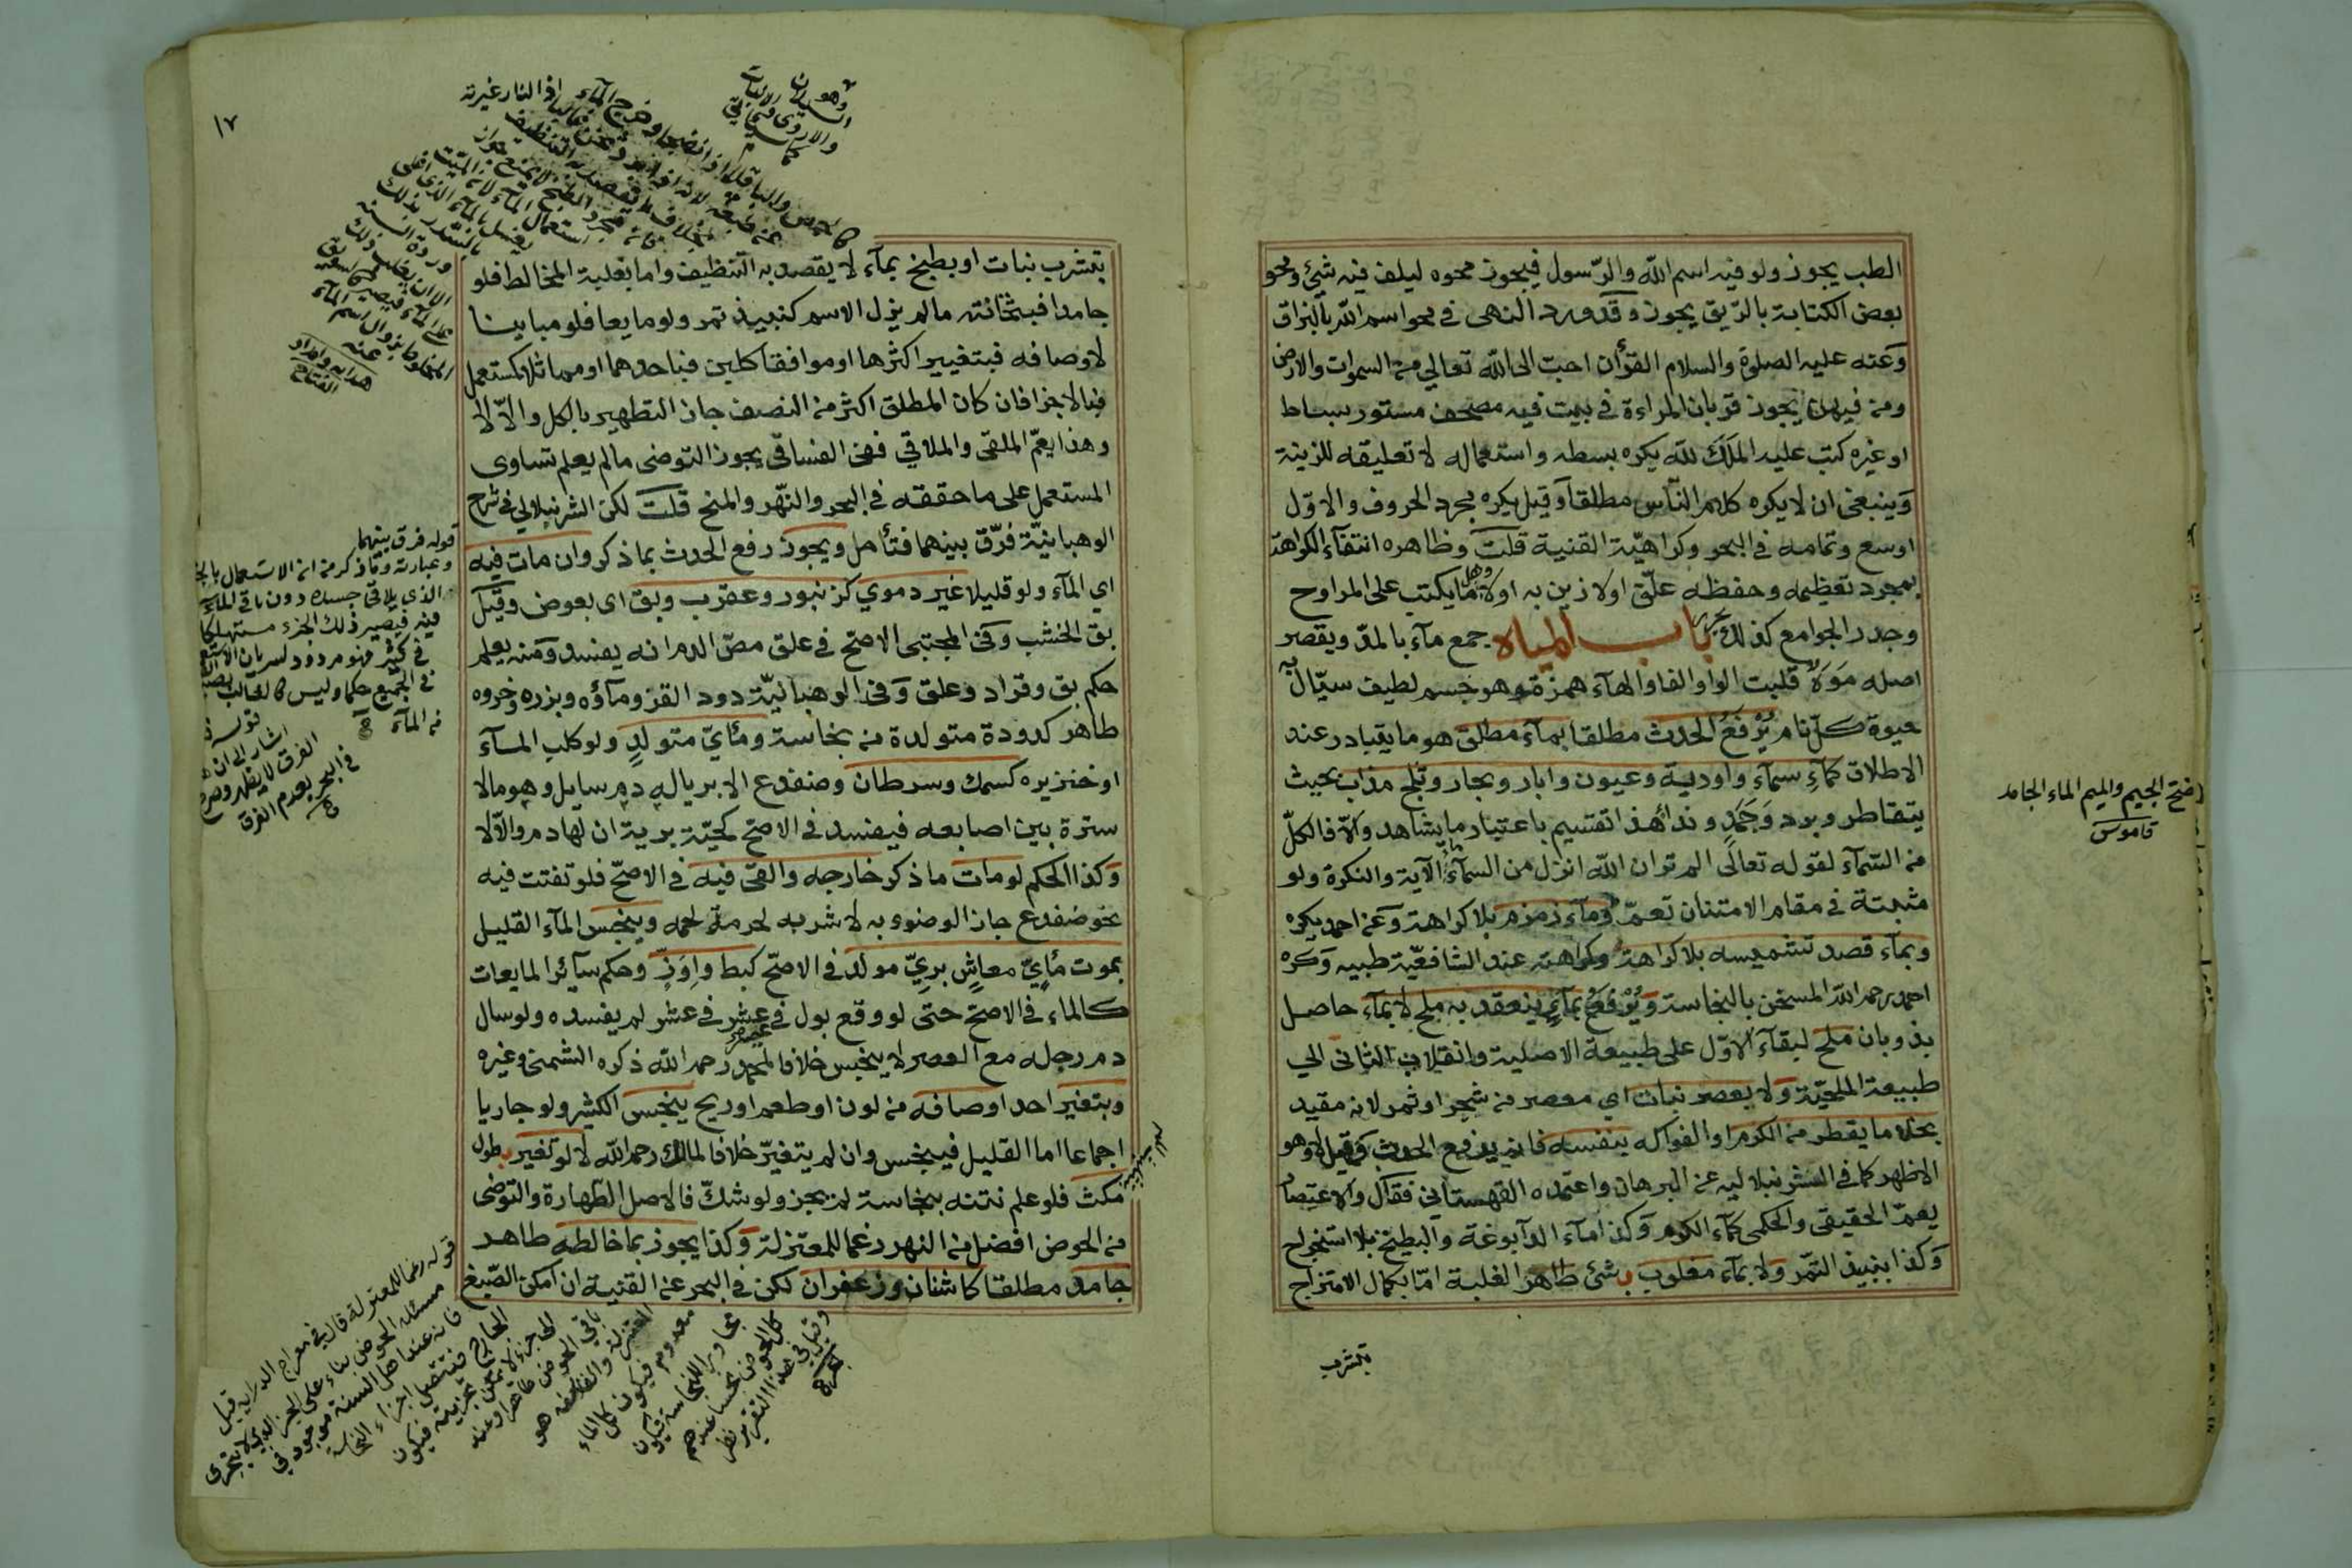 الطب يجوز ولو فيه اسم الله والرّسول فيجوز محوه ليلف فيه شيئ ومحو
بعض الكتابة بالرّيق يجوز وقد ورد النهى في محو اسم الله بالبزاق
وعنه عليه الصلوة والسلام القرأن احب الى الله تعالي من السموات والارض
ومن فيهن يجوز قربان المراءة في بيت فيه مصحف مستور بساط
او غيره كتب عليه الملك لله يكره بسطه واستعماله لا تعليقه للزينة
وينبغى ان لا يكره كلام النّاس مطلقا وقيل يكره مجرد الحروف والاوّل
اوسع وتمامه في البحر وكراهيّة القنية قلت وظاهره انتفآء الكراهة
بمجرد تعظيمه وحفظه علّق اولا زين به اولا وهل ما يكتب على المراوح
وجدر الجوامع كذلك يحرر باب المياه جمع مآء بالمدّ ويقصر
اصله مَوَهٌ قلبت الواو الفا والهآء همزة وهو جسم لطيف سيّال به
حيوة كلّ نام يُرْفَعُ الحدث مطلقا بمآء مطلق هو ما يتبادر عند
الاطلاق كمآءِ سمآء واودية وعيون وابار وبحار وثلج مذاب بحيث
يتقاطر وبرد وَجَمَدٍ وندًا هذا تقسيم باعتبار ما يشاهد والّا فالكلّ
من السّمآء لقوله تعالى الم تر ان الله انزل من السمآء مآء الآية والنكرة ولو
مثبتة في مقام الامتنان تعمّ ومآء زمزم بلا كراهة وعن احمد يكره
وبمآء قصد تشميسه بلا كراهة وكراهته عند الشافعيّة طبيه وكره
احمد رحمه الله المسخن بالنجاسة ويُرْفَعُ بمآءٍ ينعقد به ملح لا بمآء حاصل
بذوبان ملح لبقآء الاوّل على طبيعة الاصلية وانقلاب الثانى الي
طبيعة الملحيّة ولا بعصر نبات اي معصر من شجر او ثمر لانه مقيد
بخلاف ما يقطر من الكرم او الفواكه بنفسه فانه يرفع الحدث وقيل لا وهو
الاظهر كما في الشرنبلاليه عن البرهان واعتمده القهستاني فقال والاعتصار
يعمّ الحقيقى والحكمى كمآء الكرم وكذا مآء الدآبوغة والبطيخ بلا استخراج
وكذا بنبيذ التّمر ولا بمآء مغلوب بشئ طاهر الغلبة امّا بكمال الامتزاج
بتشرب
بفتح الجيم والميم الماء الجامد
قاموس
١٧
بتشرب نبات او بطبخ بمآء لا يقصد به التنظيف واما بغلبة المخالط فلو
جامدا فبثخانته ما لم يزل الاسم كنبيذ تمر ولو مايعا فلو مباينا
لاوصافه فبتغيير اكثرها او موافقا كلبن فباحدهما او مماثلا كمستعمل
فبالاجزا فان كان المطلق اكثر من النصف جاز التطهير بالكل والّا لا
وهذا يعمّ الملقى والملاقي ففى الفساقى يجوز التوضى ما لم يعلم تساوى
المستعمل على ما حققه في البحر والنّهر والمنح قلت لكن الشرنبلالي في شرح
الوهبانيّة فرّق بينهما فتأمل ويجوز رفع الحدث بما ذكر وان مات فيه
اي المآء ولو قليلا غير دموي كزنبور وعقرب وبق اى بعوض وقيل
بق الخشب وفى المجتبى الاصح في علق مصّ الدم انه يفسد ومنه يعلم
حكم بق وقراد وعلق وفى الوهبانيّة دود القز ومآؤه وبزره وخروه
طاهر كدودة متولدة من نجاسة ومائيّ متولدٍ ولو كلب المآء
او خنزيره كسمك وسرطان وضفدع الا بريا له دم سايل وهو مالا
سترة بين اصابعه فيفسد في الاصح كحيّة برية ان لها دم والّا لا
وكذا الحكم لو مات ما ذكر خارجه والقى فيه في الاصحّ فلو تفتت فيه
نحو ضفدع جاز الوضوء به لا شربه لحرمة لحمه وينجس المآء القليل
بموت مائيّ معاشٍ بريّ مولد في الاصحّ كبط واوز وحكم سآئر المايعات
كالماء في الاصحّ حتى لو وقع بول في عصير عشر في عشر لم يفسده ولو سال
دم رجله مع العصر لا ينجس خلافا لمحمد رحمه الله ذكره الشمنى وغيره
وبتغير احد اوصافه من لون او طعم او ريح ينجس الكثير ولو جاريا
اجماعا اما القليل فينجس وان لم يتغيّر خلافا لمالك رحمه الله لا لو تغير بطول
مكث فلو علم نتنه بنجاسة لم يجز ولو شكّ فالاصل الطهارة والتوضى
من الحوض افضل من النهر رغما للمعتزلة وكذا يجوز بما خالطه طاهر
جامد مطلقا كاشنان وزعفران لكن في البحر عن القنية ان امكن الصّبغ
قوله فرق بينهما
وعبارته وما ذكر من ان الاستعمال بالجزء
الذي يلاقى جسده دون باقى المآء
فيصير ذلك الجزء مستهلكا
في كثير فهو مردود لسريان الاستعمال
في الجميع حكما وليس كالغالب بصب
من المآء
اشار الى ان
الفرق لا يظهر وصرح
في البحر بعدم الفرق
قوله رغما للمعتزلة قال في معراج الدراية قيل
مسئلة الحوض بناء على الجزء الذي لا يتجزى
فانه عند اهل السنة موجود في
الخارج فتتصل اجزاء النجاسة
الى جزء لا يمكن تجزيته فيكون
باقى الحوض طاهرا وعند
المعتزلة والفلاسفة هو
معدوم فيكون كل الماء
مجاورا للنجاسة فيكون
كل الحوض نجسا عندهم
وقيل في هذا التقرير نظر
بحر